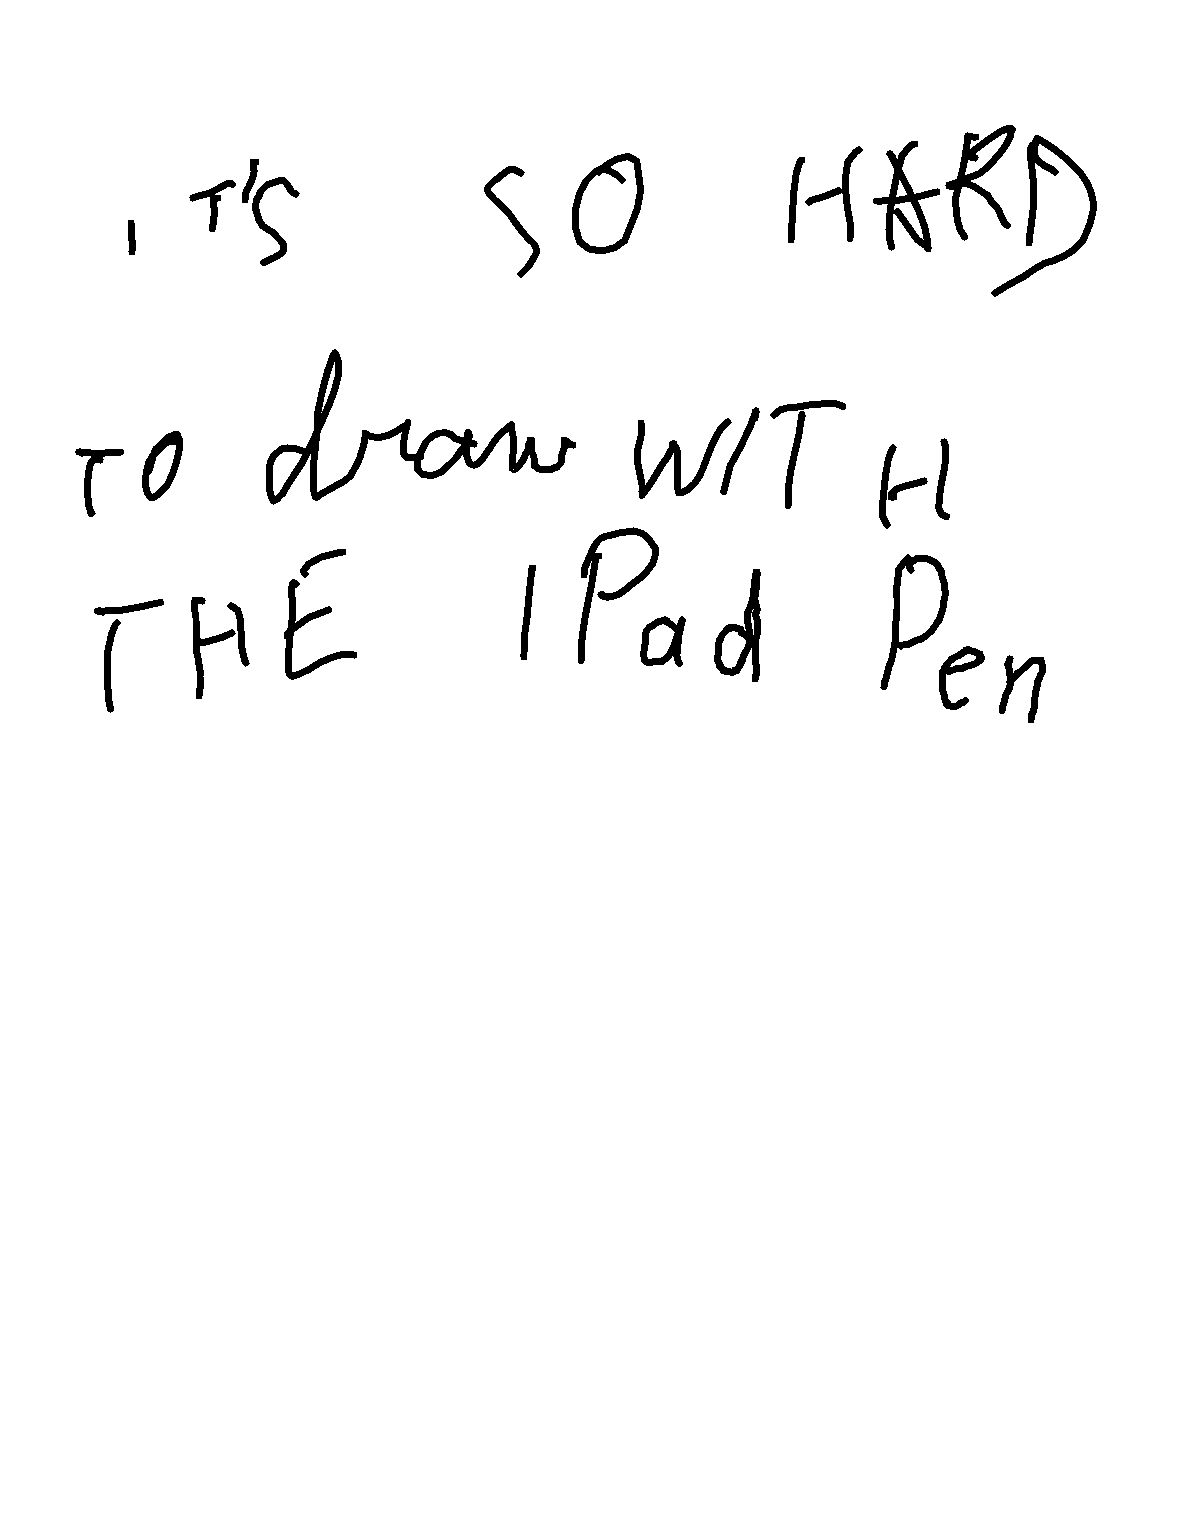 IT'S SO HARD
TO draw WITH
THE IPad Pen